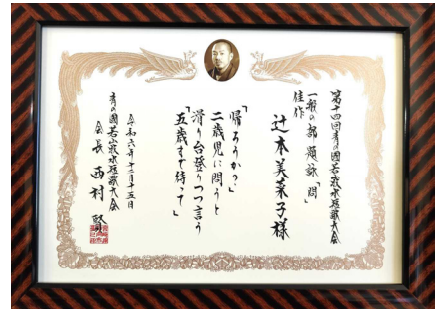 第十四回青の國若山牧水短歌大会
一般の部 題詠「問」
佳作
辻本美菜子様
「帰ろうかっ」
二歳児に問うと
滑り台登りつつ言う
「五歳まで待って」
令和六年十二月十五日
青の國若山牧水短歌大会
会長 西村 賢